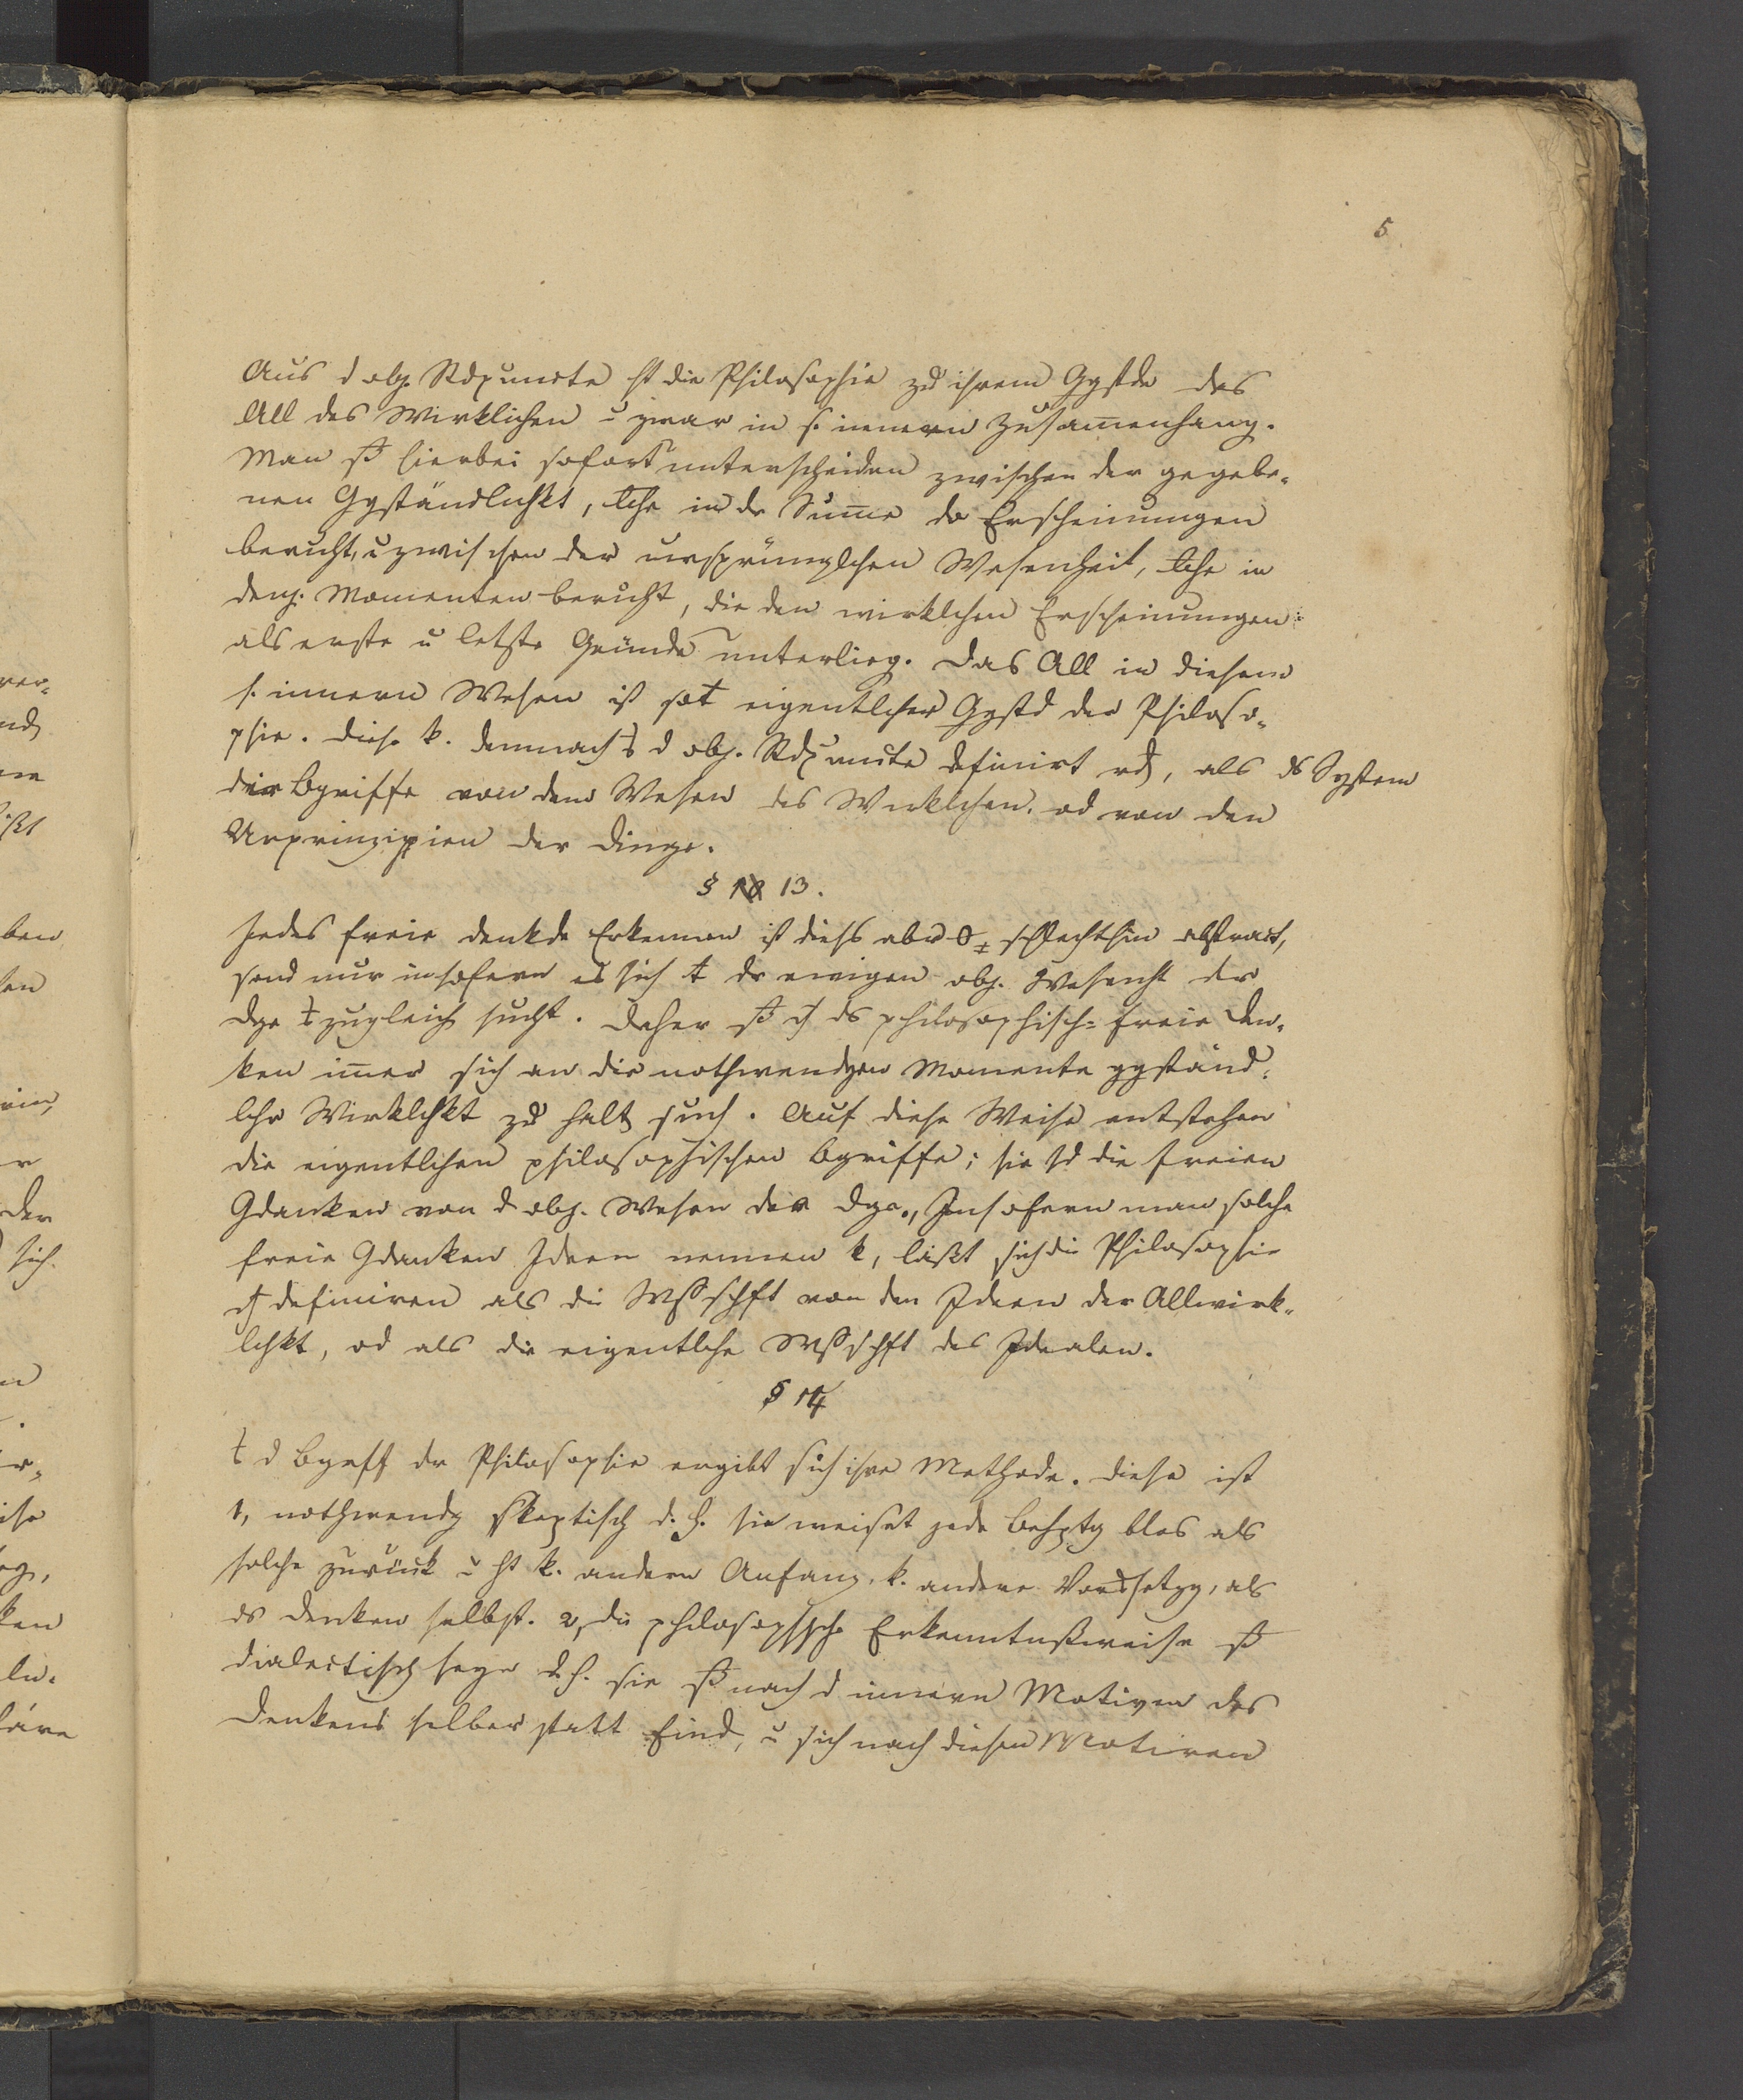 5.
Aus d obj. Stdpuncte ht die Philosophie zu ihrem Ggstde das
All des Wirklichen u zwar in s. innern Zusam̅enhang.
Man ß hierbei sofort unterscheiden zwischen der gegebe-
nen Ggständlichkt, welche in dr Sum̅e der Erscheinungen
beruht, u zwischen der ursprünglchen Wesenheit, welche in
denj. Momenten beruht, die den wirklchen Erscheinungen
als erste u letzte Gründe unterlieg. Das All in diesem
s. innern Wesen ist eigentlcher Ggstd der Philoso-
phie. Diese k. demnach d obj. Stdpuncte definirt wd, als ds System
der Bgriffe von dem Wesen des Wirklchen, od von den
Urprinzipien der Dinge.
§ 13.
Jedes freie denkde Erkennen ist dieß aber schlechthin abstract,
sond nur insofern es sich dr ewigen obj. Wesenht der
Dge zugleich sucht. Daher ß ds philosophisch-freie Den-
ken im̅er sich an die nothwendgen Momente ggständ-
lchr Wirklchkt zu halt such. Auf diese Weise entstehen
die eigentlichen philosophischen Bgriffe; sie sd die freien
Gdanken von d obj. Wesen der Dge. Insofern man solche
freie Gdanken Ideen nennen k, läßt sich die Philosophie
definiren als die Wßschft von den Ideen der Allwirk-
lchkt, od als die eigentlche Wßschft des Idealen.
§ 14
d Bgriff dr Philosophie ergibt sich ihre Methode. Diese ist
1, nothwendg skeptisch d. h. sie weiset jede Behptg blos als
solche zurück u ht k. andern Anfang, k. andere Vorssetzg, als
ds Denken selbst. 2, die philosophische Erkenntnßweise ß
dialectisch seyn d. h. sie ß nach d innern Motiven des
Denkens selber statt find, u sich nach diesen Motiven